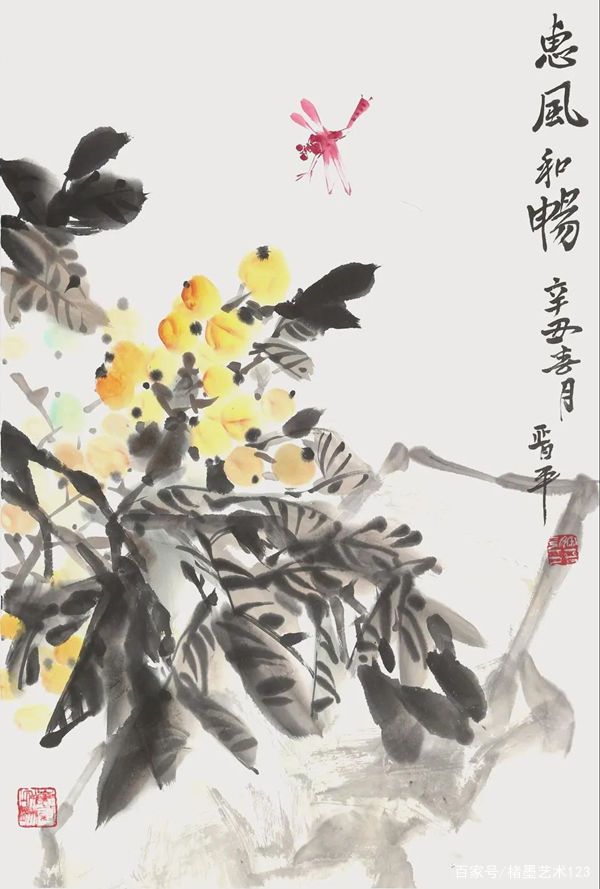 惠風和暢
辛丑春月
晉平
百家号/楮墨艺术123